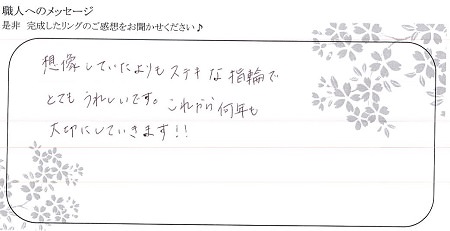 職人へのメッセージ
是非 完成したリングのご感想をお聞かせください♪
想像していたよりもステキな指輪で
とてもうれしいです。これから何年も
大切にしていきます!!